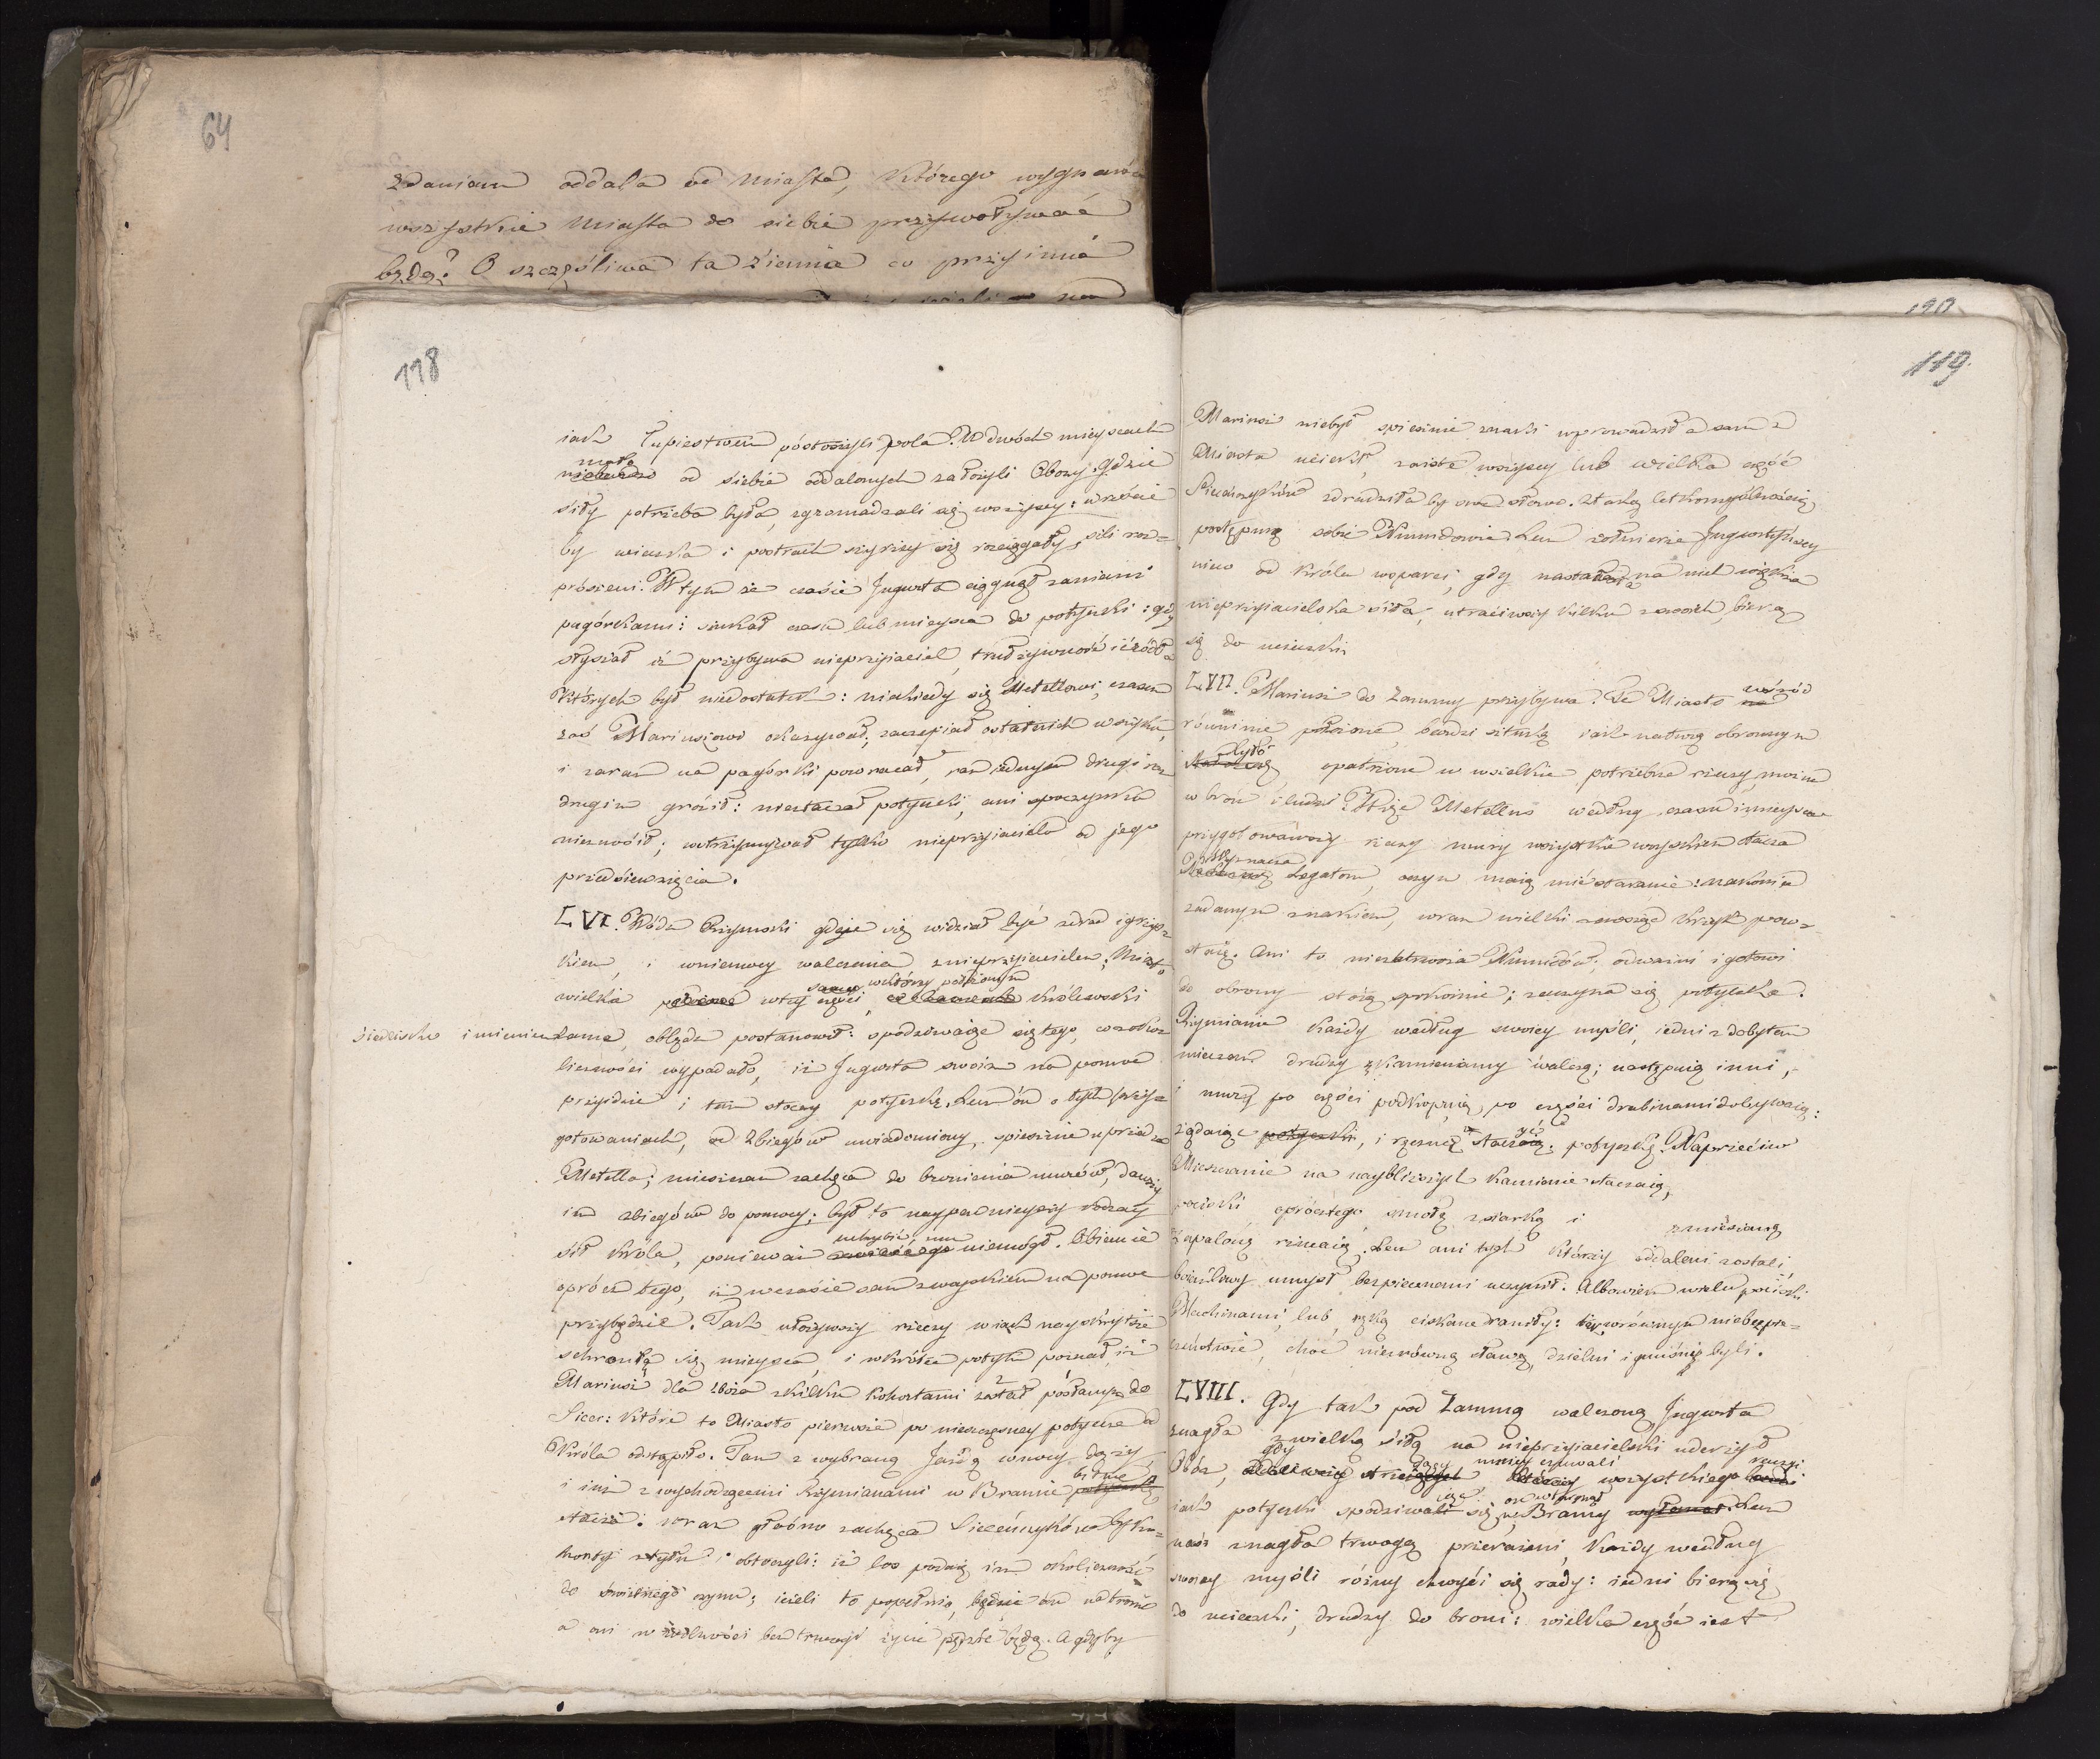 64
zdaniem oddala od Miasta, którego wygnańca
wszystkie Miasta do siebie przywoływać
będą? O szczęśliwa ta ziemia co przyimie
118
iak łupiestwem póstoszyli pola. W dwóch mieyscach
mało
od siebie oddalonych założyli Obozy. Gdzie
siły potrzeba była, zgromadzali się wszyscy: wreście
by ucieczka i postrach szyrzey się rozciągały, szli roz=
prószeni. W tym że czasie Jugurta ciągnął zaniemi
pagórkami: szukał czasu lub mieysca do potyczki: gdzie
słyszał iż przybywa nieprzyiaciel, truł żywność i źródła
których był niedostatek: niekiedy się Metellowi, czasem
zaś Mariuszowi okazywał, zaczepiał ostatnich w szyku,
i zaraz na pagórki powracał, raz iednym drugi raz
drugim groził: niestaczał potyczki, ani spoczynku
niezwolił; wstrzymywał tylko nieprzyiaciela od jego
przedsiewzięcia.
LVI. Wódz Rzymski gdyje się widział być zdrad igrzys=
kiem, i wniemocy walczenia znieprzyiacielem; Miasto
wielkie wtey części, wktórey położonym królewski
siedlisko imieniem Zama, oblędz postanowił: spodziwaiąc się tego, co zokoz
liczności wypadało, iż Jugurta swoim na pomoc
przyidzie i tam stoczy potyczkę. Lecz ón o tych przy=
gotowaniach, od Zbiegów uwiadomiony, spiesznie uprzedza
Metella; mieszczan zachęca do bronienia murów, dawszy
im zbiegów do pomocy; był to naypewnieyszy rodzay
sił króla, ponieważ niemógł. Obiecuie
oprócz tego, iż wczasie sam zwoyskiem na pomoc
przybędzie. Tak ułożywszy rzeczy w iak nayskrytsze
schronił się mieysca, i wkrótce potym poznał, iż
Mariusz dla zboża zkilku kohortami został posłanym do
Sicci: które to Miasto pierwsze po nieszczęsney potyczce od
Króla odstąpiło. Tam z wybraną Jazdą wnocy dąży
i iuż z wychodzącemi Rzymianami w Bramie bitwę
stacza: wraz głośno zachęca Siceńczyków by Ko=
horty ztyłu obtoczyli: iż los podaię im okoliczność
do świetnego czynu; ieżeli to popełnią, będzie ón na tronie
a oni w wolności bez trwogi życie pędzić będą. A gdyby
120
119.
Mariusz niebył spiesznie znaki wprowadził a sam z
Miasta uciekł, zaiste wszyscy lub wielka część
Siceńczyków zdradziła by swe słowo. Z taką letkomyślnością
postępuią sobie Numidowie. Lecz żołnierze Jugurtyńscy
nieco od Króla wsparci, gdy nastała na nich większa
nieprzyiacielska siła, utraciwszy kilku zswoich, biorą
się do ucieczki.
LVII. Mariusz do Zammy przybywa. Te Miasto wśród
równinie położone, bardzi sztuką iak naturą obronnym
było opatrzone w wszelkie potrzebne rzeczy, można
w broń i ludzi. Więc Metellus według czasu imieysca
przygotowawszy rzeczy mury wszystkie woyskiem otacza
Wyznacza Legatom, oczym maią mieć staranie: nakoniec
zadanym znakiem, wraz wielki zewsząd krzyk pow=
staię. Ani to niezatrwoża Numidów; odważni i gotowi
do obrony stoią spokoinie; zaczyna się potyczka.
Rzymianie każdy według swoiey myśli, iedni zdobytem
mieczem drudzy zkamieniamy walczą; następuią inni,
i mury po części podkopuią, po części drabinamidobywaią:
żądaiąc , i ręczną potyczkę. Naprzeciw
Mieszczanie na nayblizszych kamienie staczaią,
pociski oprócztego smołę zsiarką i zmieszaną
zapaloną rzucaią. Lecz ani tych którzy oddaleni zostali,
boiaźliwy umysł bezpiecznemi uczynił. Albowiem wielu pociski
Machinami, lub ręką ciskane raniły: więc wrównym niebezpie=
czeństwie, choć nierówną sławą, dzielni i gnuśni byli.
LVIII. Gdy tak pod Zammą walczono Jugurta
znagła z wielką siłą na nieprzyiacielski uderzył
Obóz, gdy mniey czuwali wszystkiego
iak potyczki spodziwali się, on wtargnął w Bramy. Lecz
nasi znagła trwogą przerażeni, każdy według
swoiey myśli różney chwyci się rady: iedni biorą się
do ucieczki, drudzy do broni: wielka część iest